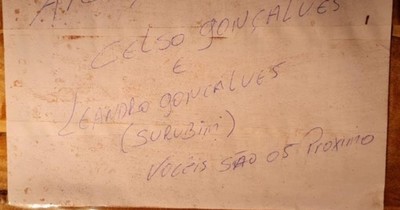 CELSO GONÇALVES
E
LEANDRO GONCALVES
(SURUBIM)
VOCEIS SÃO OS PROXIMO